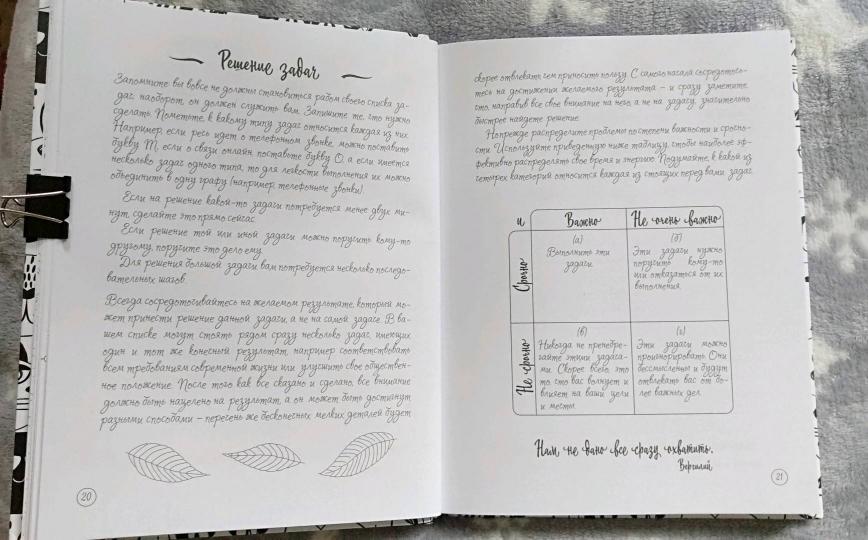 Решение задач
Запомните: вы вовсе не должны становиться рабом своего списка за-
дач, наоборот, он должен служить вам. Запишите те, что нужно
сделать. Пометьте, к какому типу задач относится каждая из них.
Например, если речь идет о телефонном звонке, можно поставить
букву Т, если о связи онлайн, поставьте букву О, а если имеется
несколько задач одного типа, то для легкости выполнения их можно
объединить в одну графу (например, телефонные звонки).
Если на решение какой-то задачи потребуется менее двух ми-
нут, сделайте это прямо сейчас.
Если решение той или иной задачи можно поручить кому-то
другому, поручите это дело ему.
Для решения большой задачи вам потребуется несколько последо-
вательных шагов.
Всегда сосредотачивайтесь на желаемом результате, который мо-
жет принести решение данной задачи, а не на самой задаче. В ва-
шем списке могут стоять рядом сразу несколько задач, имеющих
один и тот же конечный результат, например соответствовать
всем требованиям современной жизни или улучшить свое обществен-
ное положение. После того как все сказано и сделано, все внимание
должно быть нацелено на результат, а он может быть достигнут
разными способами – перечень же бесконечных мелких деталей будет
20
скорее отвлекать, чем приносить пользу. С самого начала сосредоточь-
тесь на достижении желаемого результата – и сразу заметите,
что, направив все свое внимание на него, а не на задачу, значительно
быстрее найдете решение.
Но прежде распределите проблемы по степени важности и срочно-
сти. Используйте приведенную ниже таблицу, чтобы наиболее эф-
фективно распределять свое время и энергию. Подумайте, к какой из
четырех категорий относится каждая из стоящих перед вами задач.
и Важно Не очень важно
Срочно
(а)
Выполнить эти
задачи.
(б)
Эти задачи нужно
поручить кому-то
или отказаться от их
выполнения.
Не срочно
(в)
Никогда не пренебре-
гайте этими задача-
ми. Скорее всего, это
то, что вас волнует и
влияет на ваши цели
и мечты.
(г)
Эти задачи можно
проигнорировать. Они
бессмысленны и будут
отвлекать вас от бо-
лее важных дел.
Нам не дано все сразу охватить.
Вергилий
21